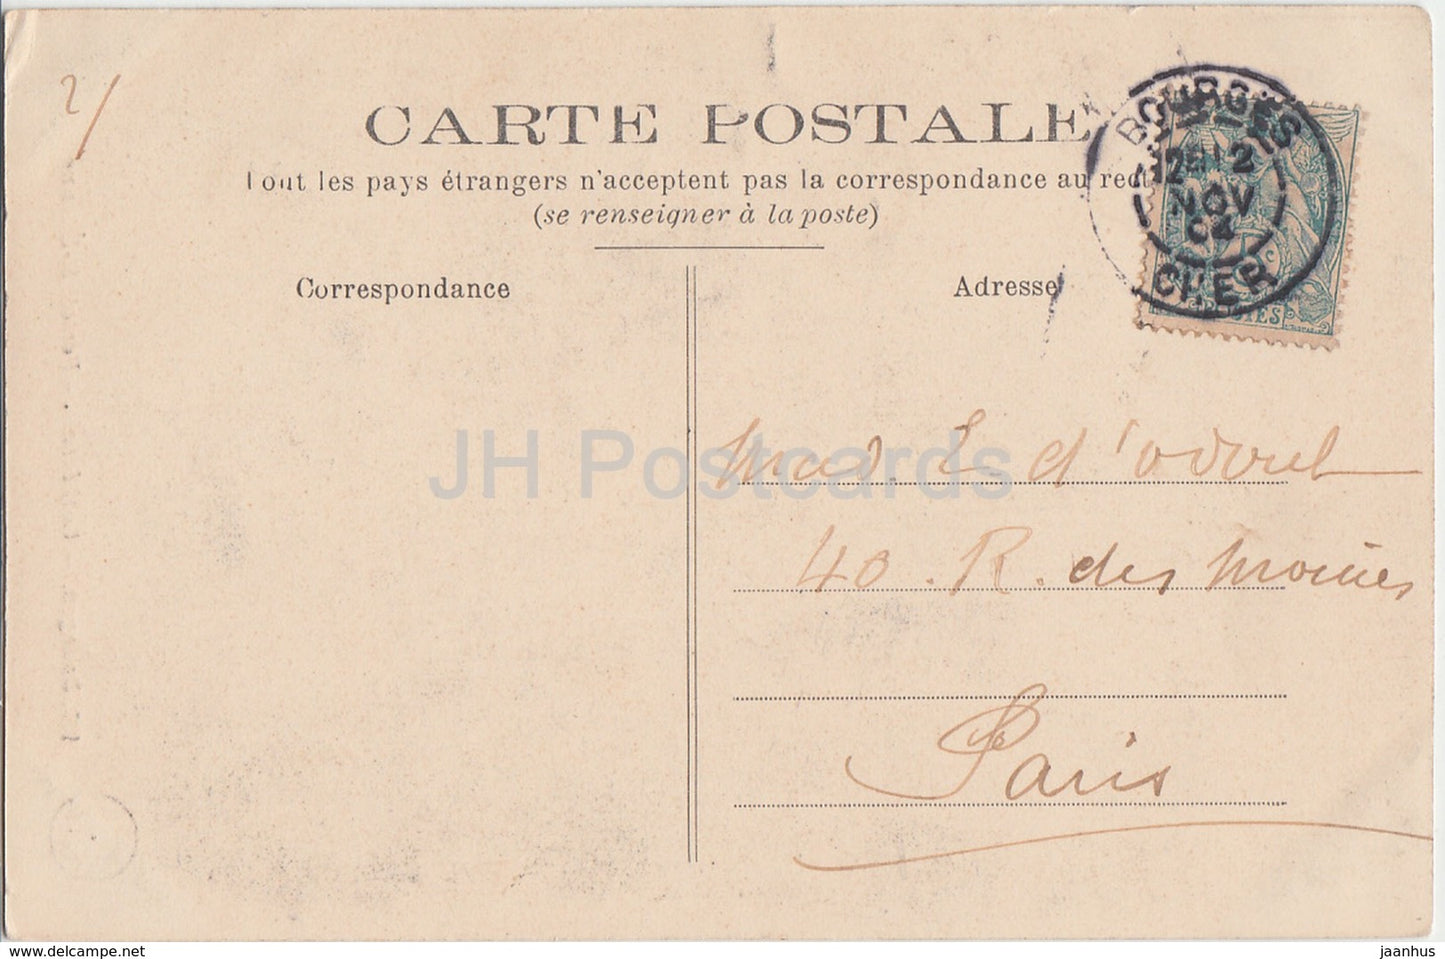 2/
CARTE POSTALE
Tout les pays étrangers n'acceptent pas la correspondance au rect
(se renseigner à la poste)
Correspondance
Adresse
BOURGES
12
NOV
04
CHER
5c
POSTES
JH Postcards
Mad. E d'odoret
40. R. des Moines
Paris
www.delcampe.net
jaanhus